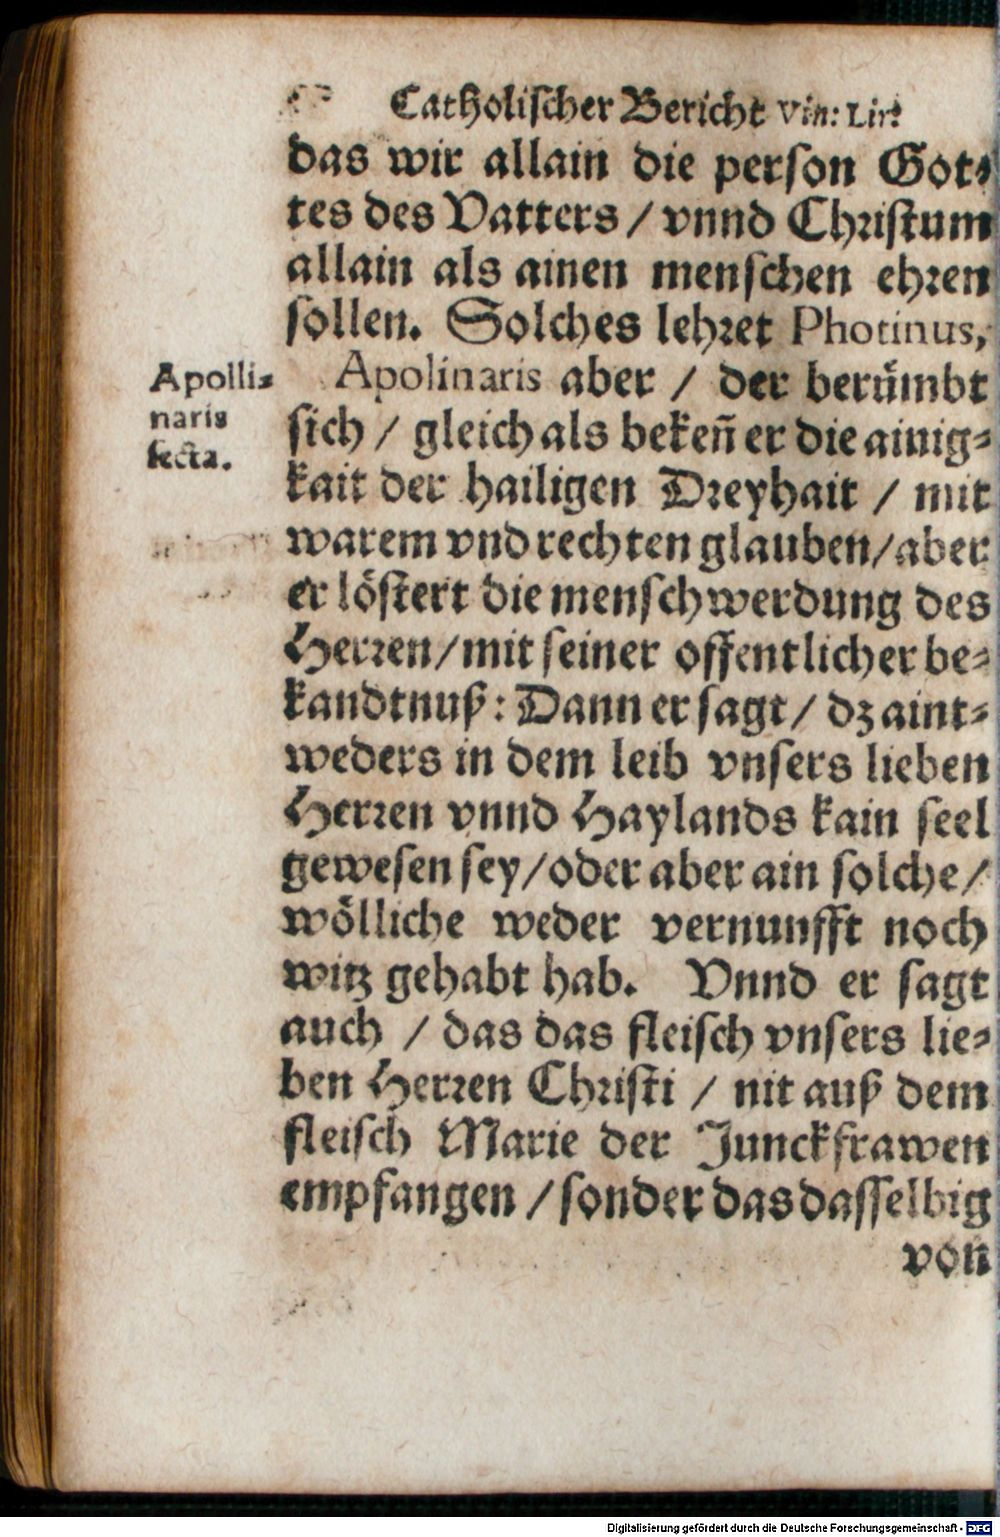 Catholischer Bericht Vin: Lir:
das wir allain die person Got-
tes des Vatters / vnnd Christum
allain als ainen menschen ehren
sollen. Solches lehret Photinus,
Apolli-
naris
secta.
Apolinaris aber / der berümbt
sich / gleich als bekeñ er die ainig-
kait der hailigen Dreyhait / mit
warem vnd rechten glauben / aber
er löstert die menschwerdung des
Herren / mit seiner offentlicher be-
kandtnuß: Dann er sagt / dz aint-
weders in dem leib vnsers lieben
Herren vnnd Haylands kain seel
gewesen sey / oder aber ain solche /
wölliche weder vernunfft noch
witz gehabt hab. Vnnd er sagt
auch / das das fleisch vnsers lie-
ben Herren Christi / nit auß dem
fleisch Marie der Junckfrawen
empfangen / sonder das dasselbig
von
Digitalisierung gefördert durch die Deutsche Forschungsgemeinschaft - DFG